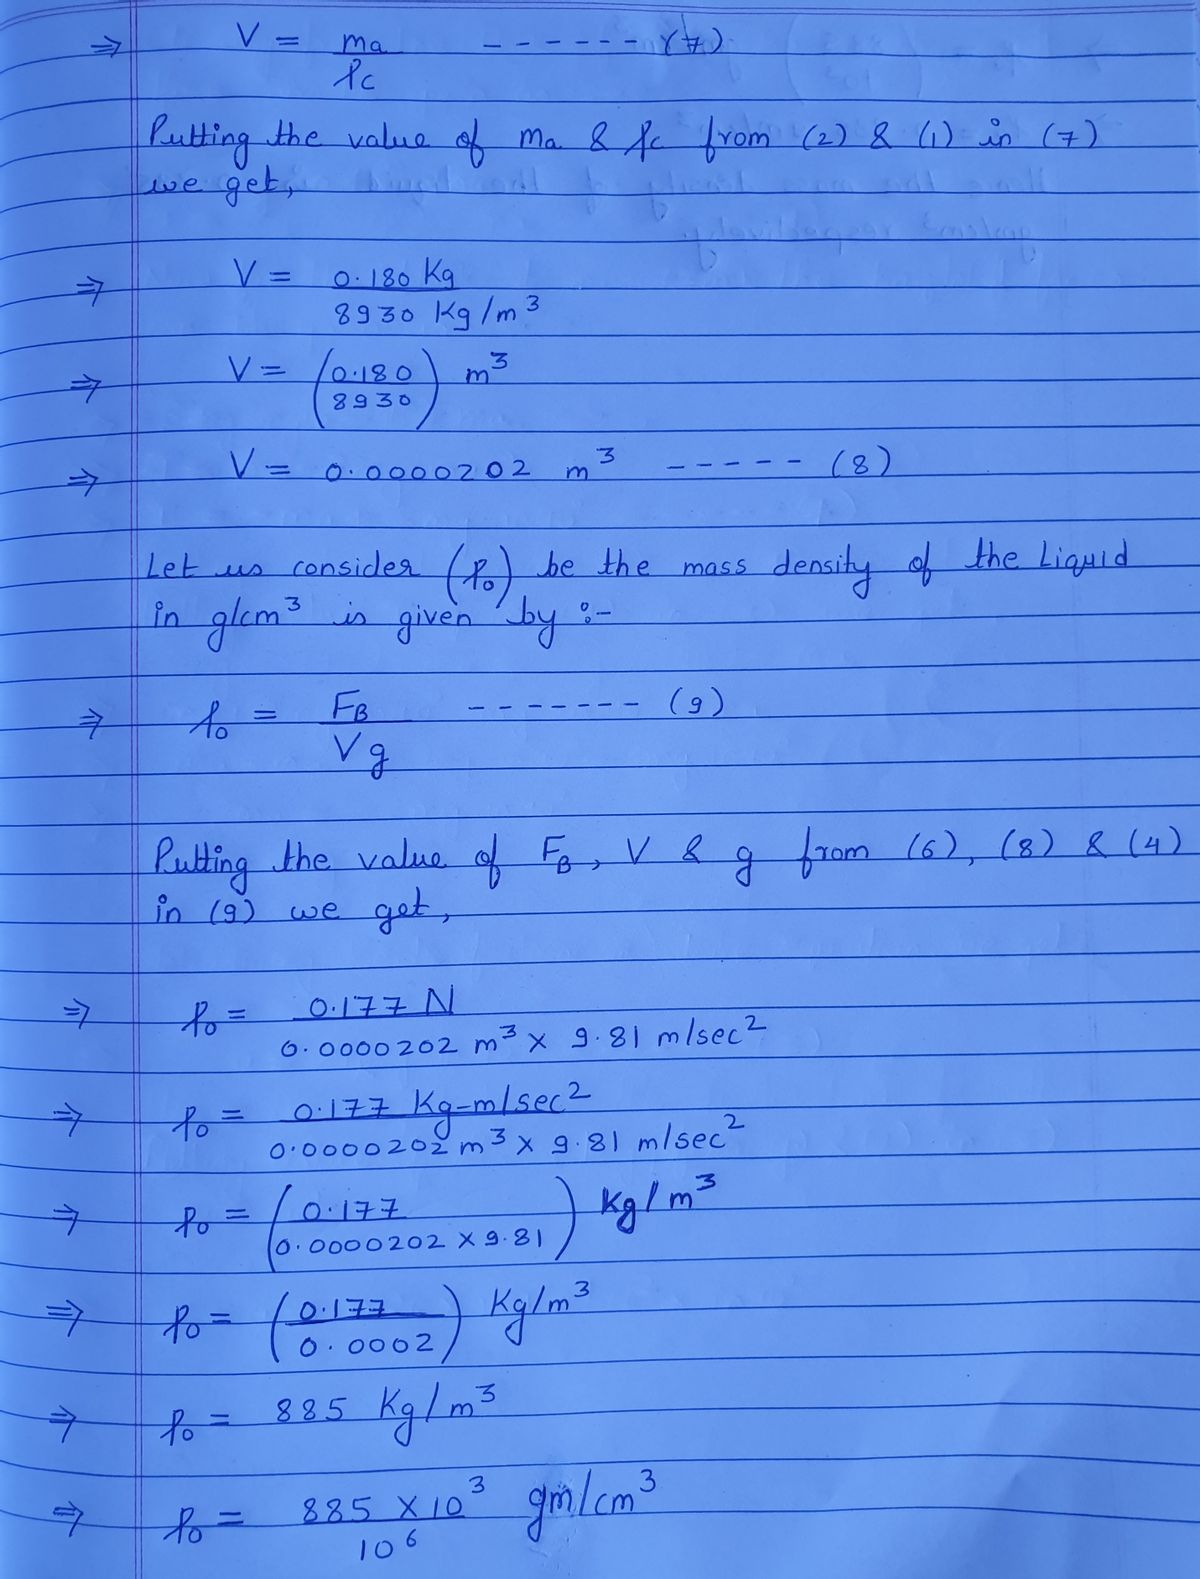 ⇒ V = ma/ρc ------ (7)
Putting the value of ma & ρc from (2) & (1) in (7)
we get,
⇒ V = 0.180 Kg / 8930 Kg/m³
⇒ V = (0.180/8930) m³
⇒ V = 0.0000202 m³ ----- (8)
Let us consider (ρo) be the mass density of the Liquid
in g/cm³ is given by :-
⇒ ρo = FB/Vg ------- (9)
Putting the value of FB, V & g from (6), (8) & (4)
in (9) we get,
⇒ ρo = 0.177 N / 0.0000202 m³ × 9.81 m/sec²
⇒ ρo = 0.177 Kg-m/sec² / 0.0000202 m³ × 9.81 m/sec²
⇒ ρo = (0.177 / 0.0000202 × 9.81) Kg/m³
⇒ ρo = (0.177/0.0002) Kg/m³
⇒ ρo = 885 Kg/m³
⇒ ρo = 885 × 10³ / 10⁶ gm/cm³